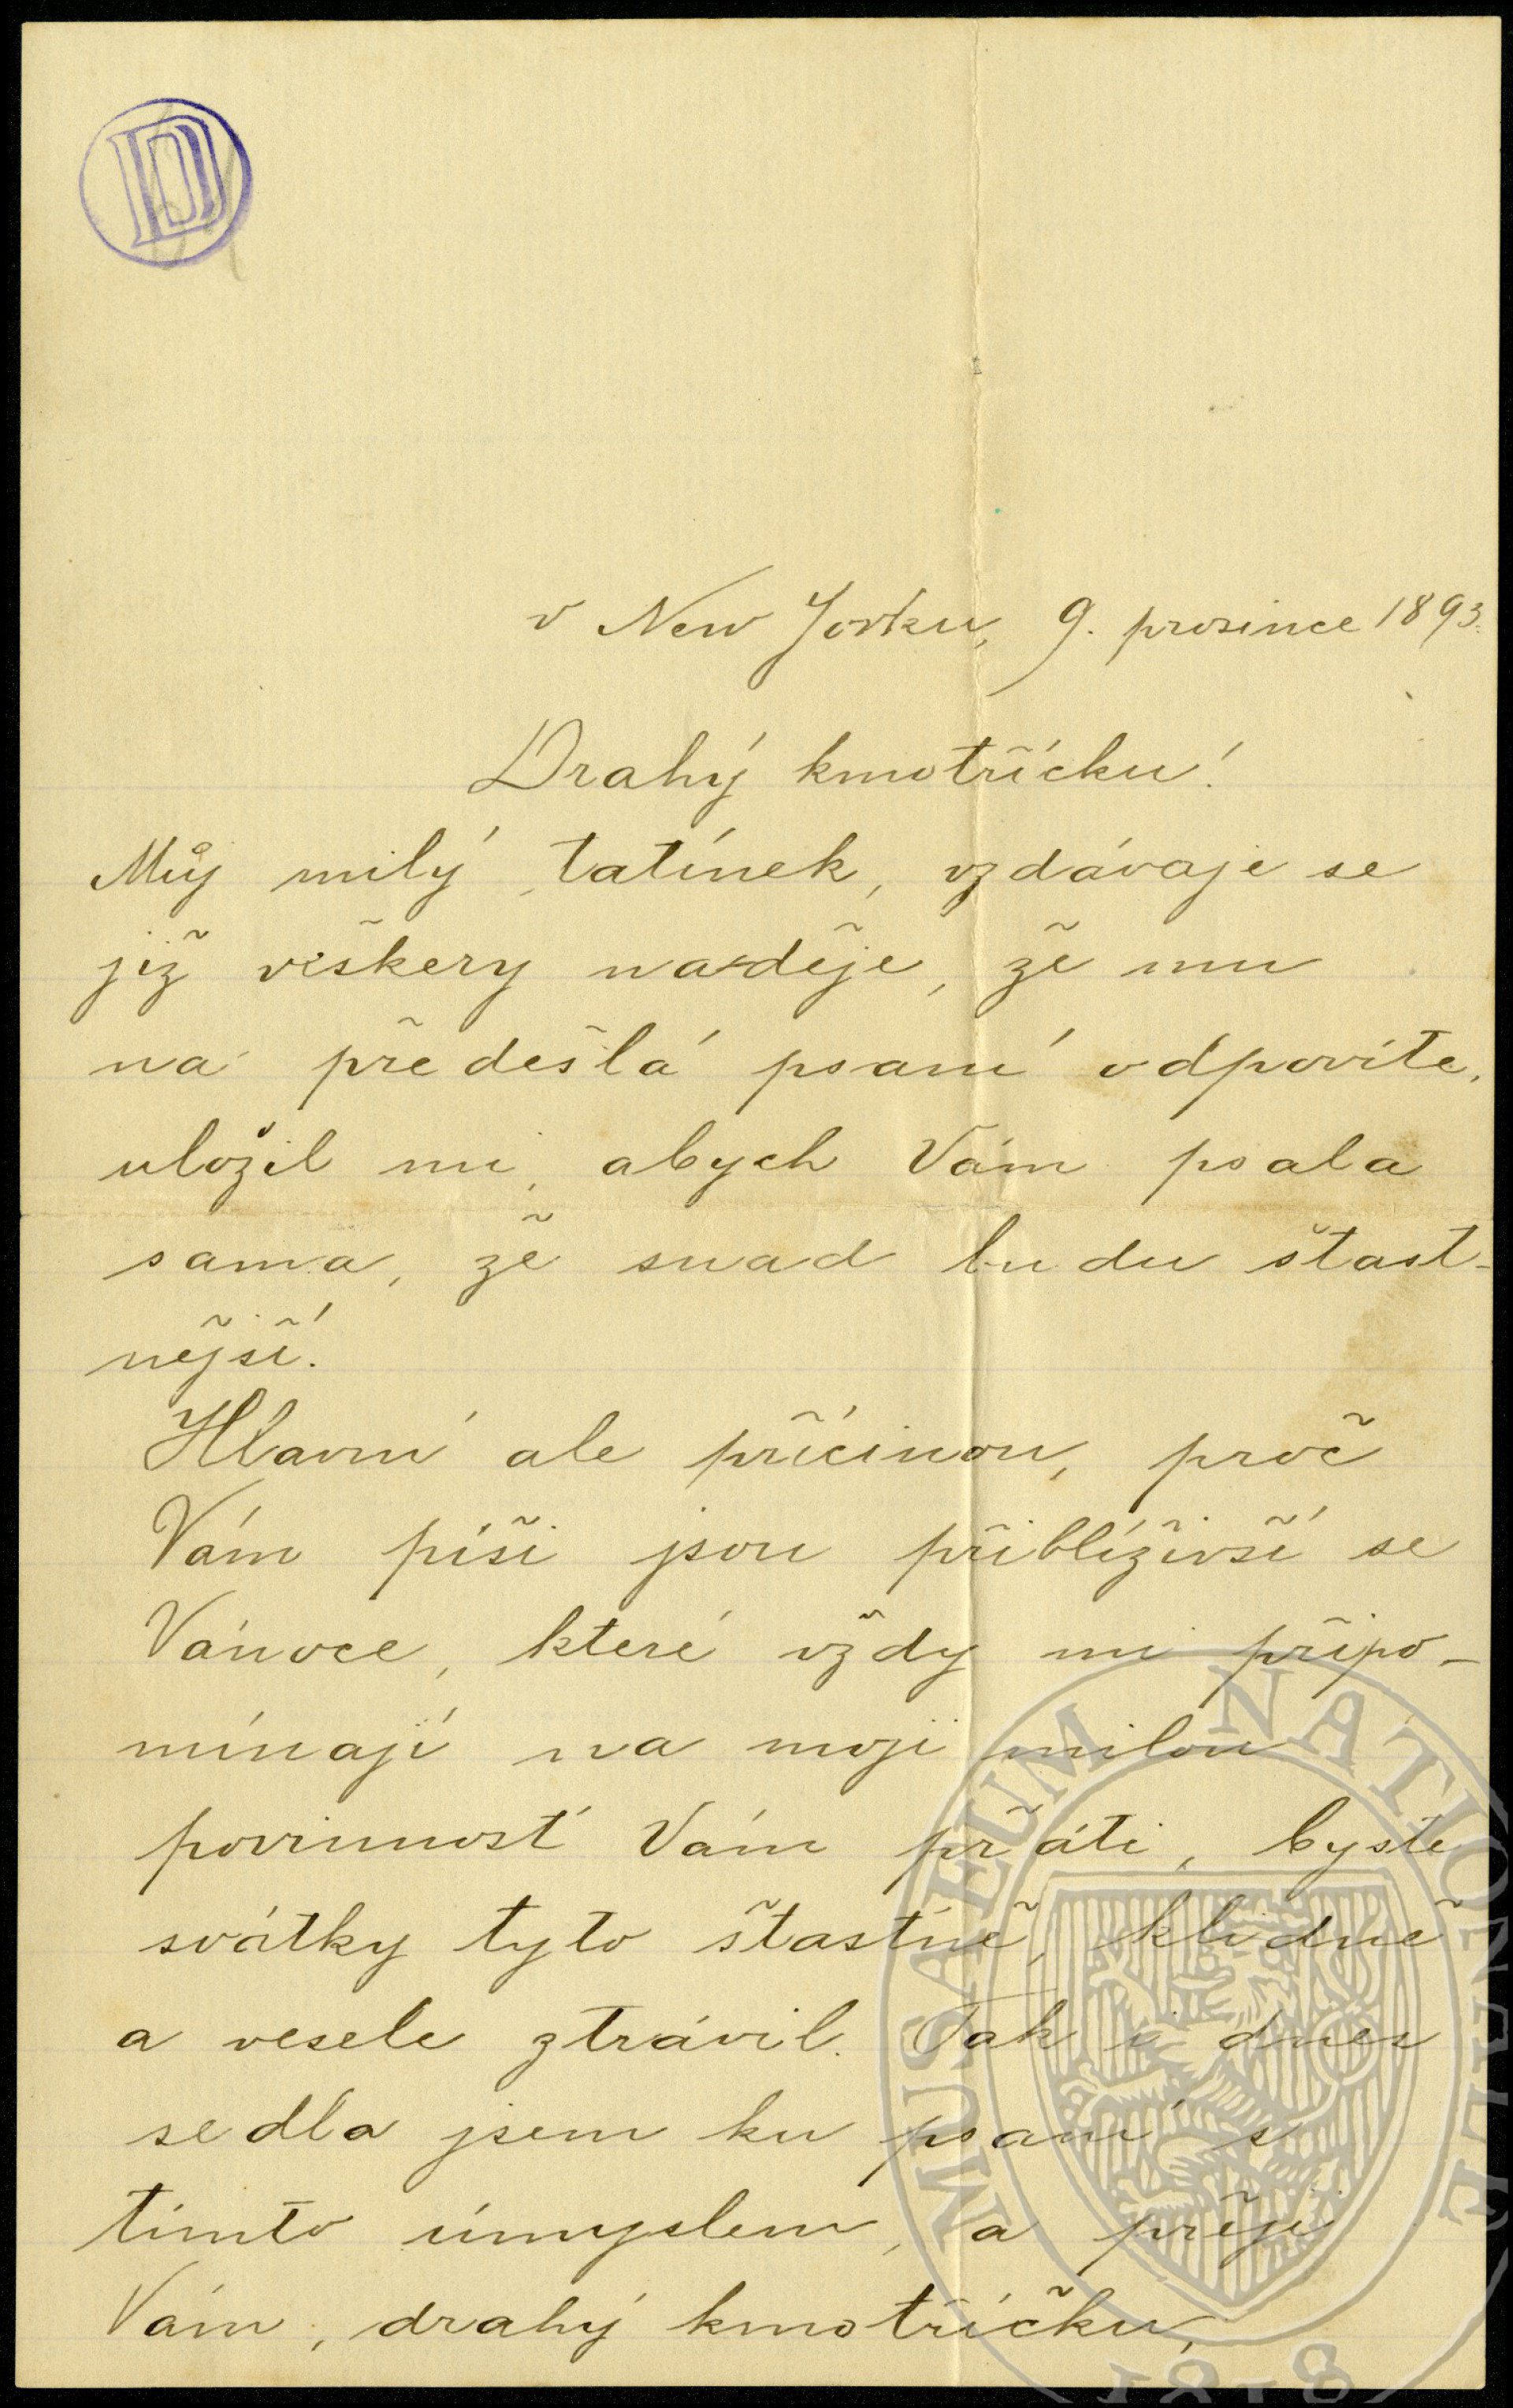 D
v New Jorku, 9. prosince 1893.
Drahý kmotříčku!
Můj milý tatínek, vzdávaje se
již veškery naděje, že mu
na předešlá psaní odpovíte,
uložil mi, abych Vám psala
sama, že snad budu šťast-
nější.
Hlavní ale příčinou, proč
Vám píši jsou přiblíživší se
Vánoce, které vždy mi připo-
mínají na moji milou
povinnosť Vám přáti, byste
svátky tyto šťastně, klidně
a vesele ztrávil. Tak i dnes
sedla jsem ku psaní s
tímto úmyslem, a přeji
Vám, drahý kmotříčku,
MUSAEUM NATIONALE
1818